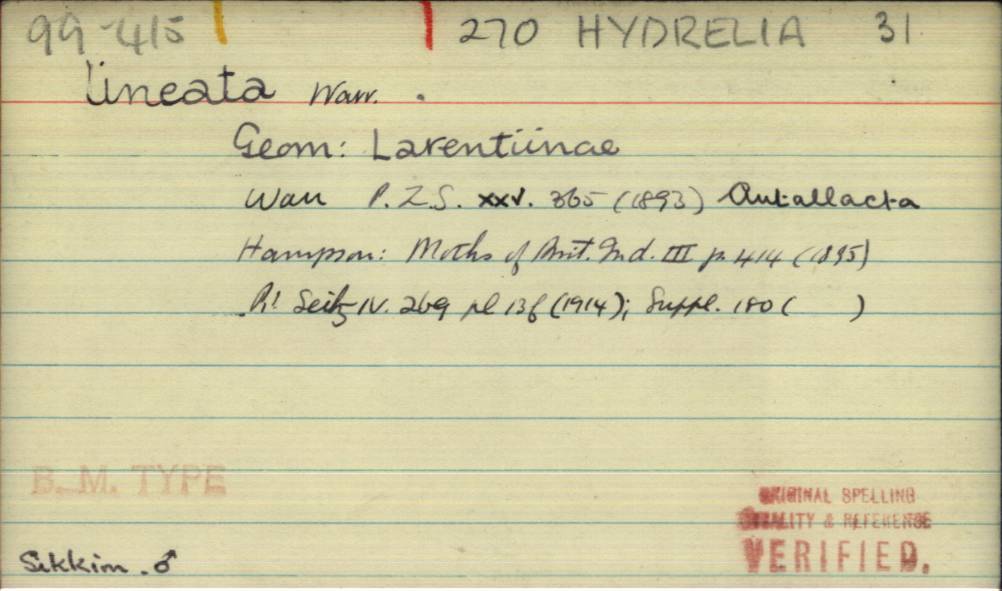 99-415 270 HYDRELIA 31
lineata Warr.
Geom: Larentiinae
Warr P.Z.S. xxv. 365 (1893) Autallacta
Hampson: Moths of Brit. Ind. III p. 414 (1895)
Seitz IV. 269 pl 13f (1914); Suppl. 180 ( )
B. M. TYPE
ORIGINAL SPELLING
& REFERENCE
VERIFIED.
Sikkim. ♂